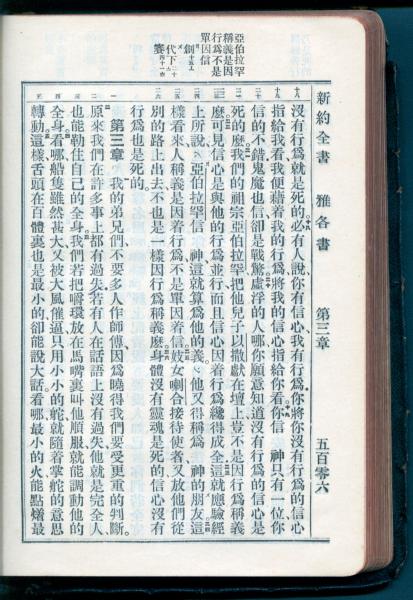 新約全書 雅各書 第三章 五百零六
亞伯拉罕
稱義是因
行爲不是
單因信
沒有行爲、就是死的、必有人說、你有信心、我有行爲、你將你沒有行爲的信心
指給我看、我便藉着我的行爲、將我的信心指給你看、你信 神只有一位、你
信的不錯、鬼魔也信、卻是戰驚、虛浮的人哪、你願意知道沒有行爲的信心是
死的麼、我們的祖宗亞伯拉罕、把他兒子以撒獻在壇上、豈不是因行爲稱義
麼、可見信心是與他的行爲並行、而且信心因着行爲纔得成全、這就應驗經
上所說、亞伯拉罕信 神、這就算爲他的義、他又得稱爲 神的朋友、這
樣看來、人稱義是因着行爲、不是單因着信、妓女喇合接待使者、又放他們從
別的路上出去、不也是一樣因行爲稱義麼、身體沒有靈魂是死的、信心沒有
行爲也是死的。
第三章 我的弟兄們、不要多人作師傅、因爲曉得我們要受更重的判斷、
原來我們在許多事上都有過失、若有人在話語上沒有過失、他就是完全人、
也能勒住自己的全身、我們若把嚼環放在馬嘴裏、叫他順服、就能調動他的
全身、看哪、船隻雖然甚大、又被大風催逼、只用小小的舵、就隨着掌舵的意思
轉動、這樣、舌頭在百體裏也是最小的、卻能說大話、看哪、最小的火、能點燔最